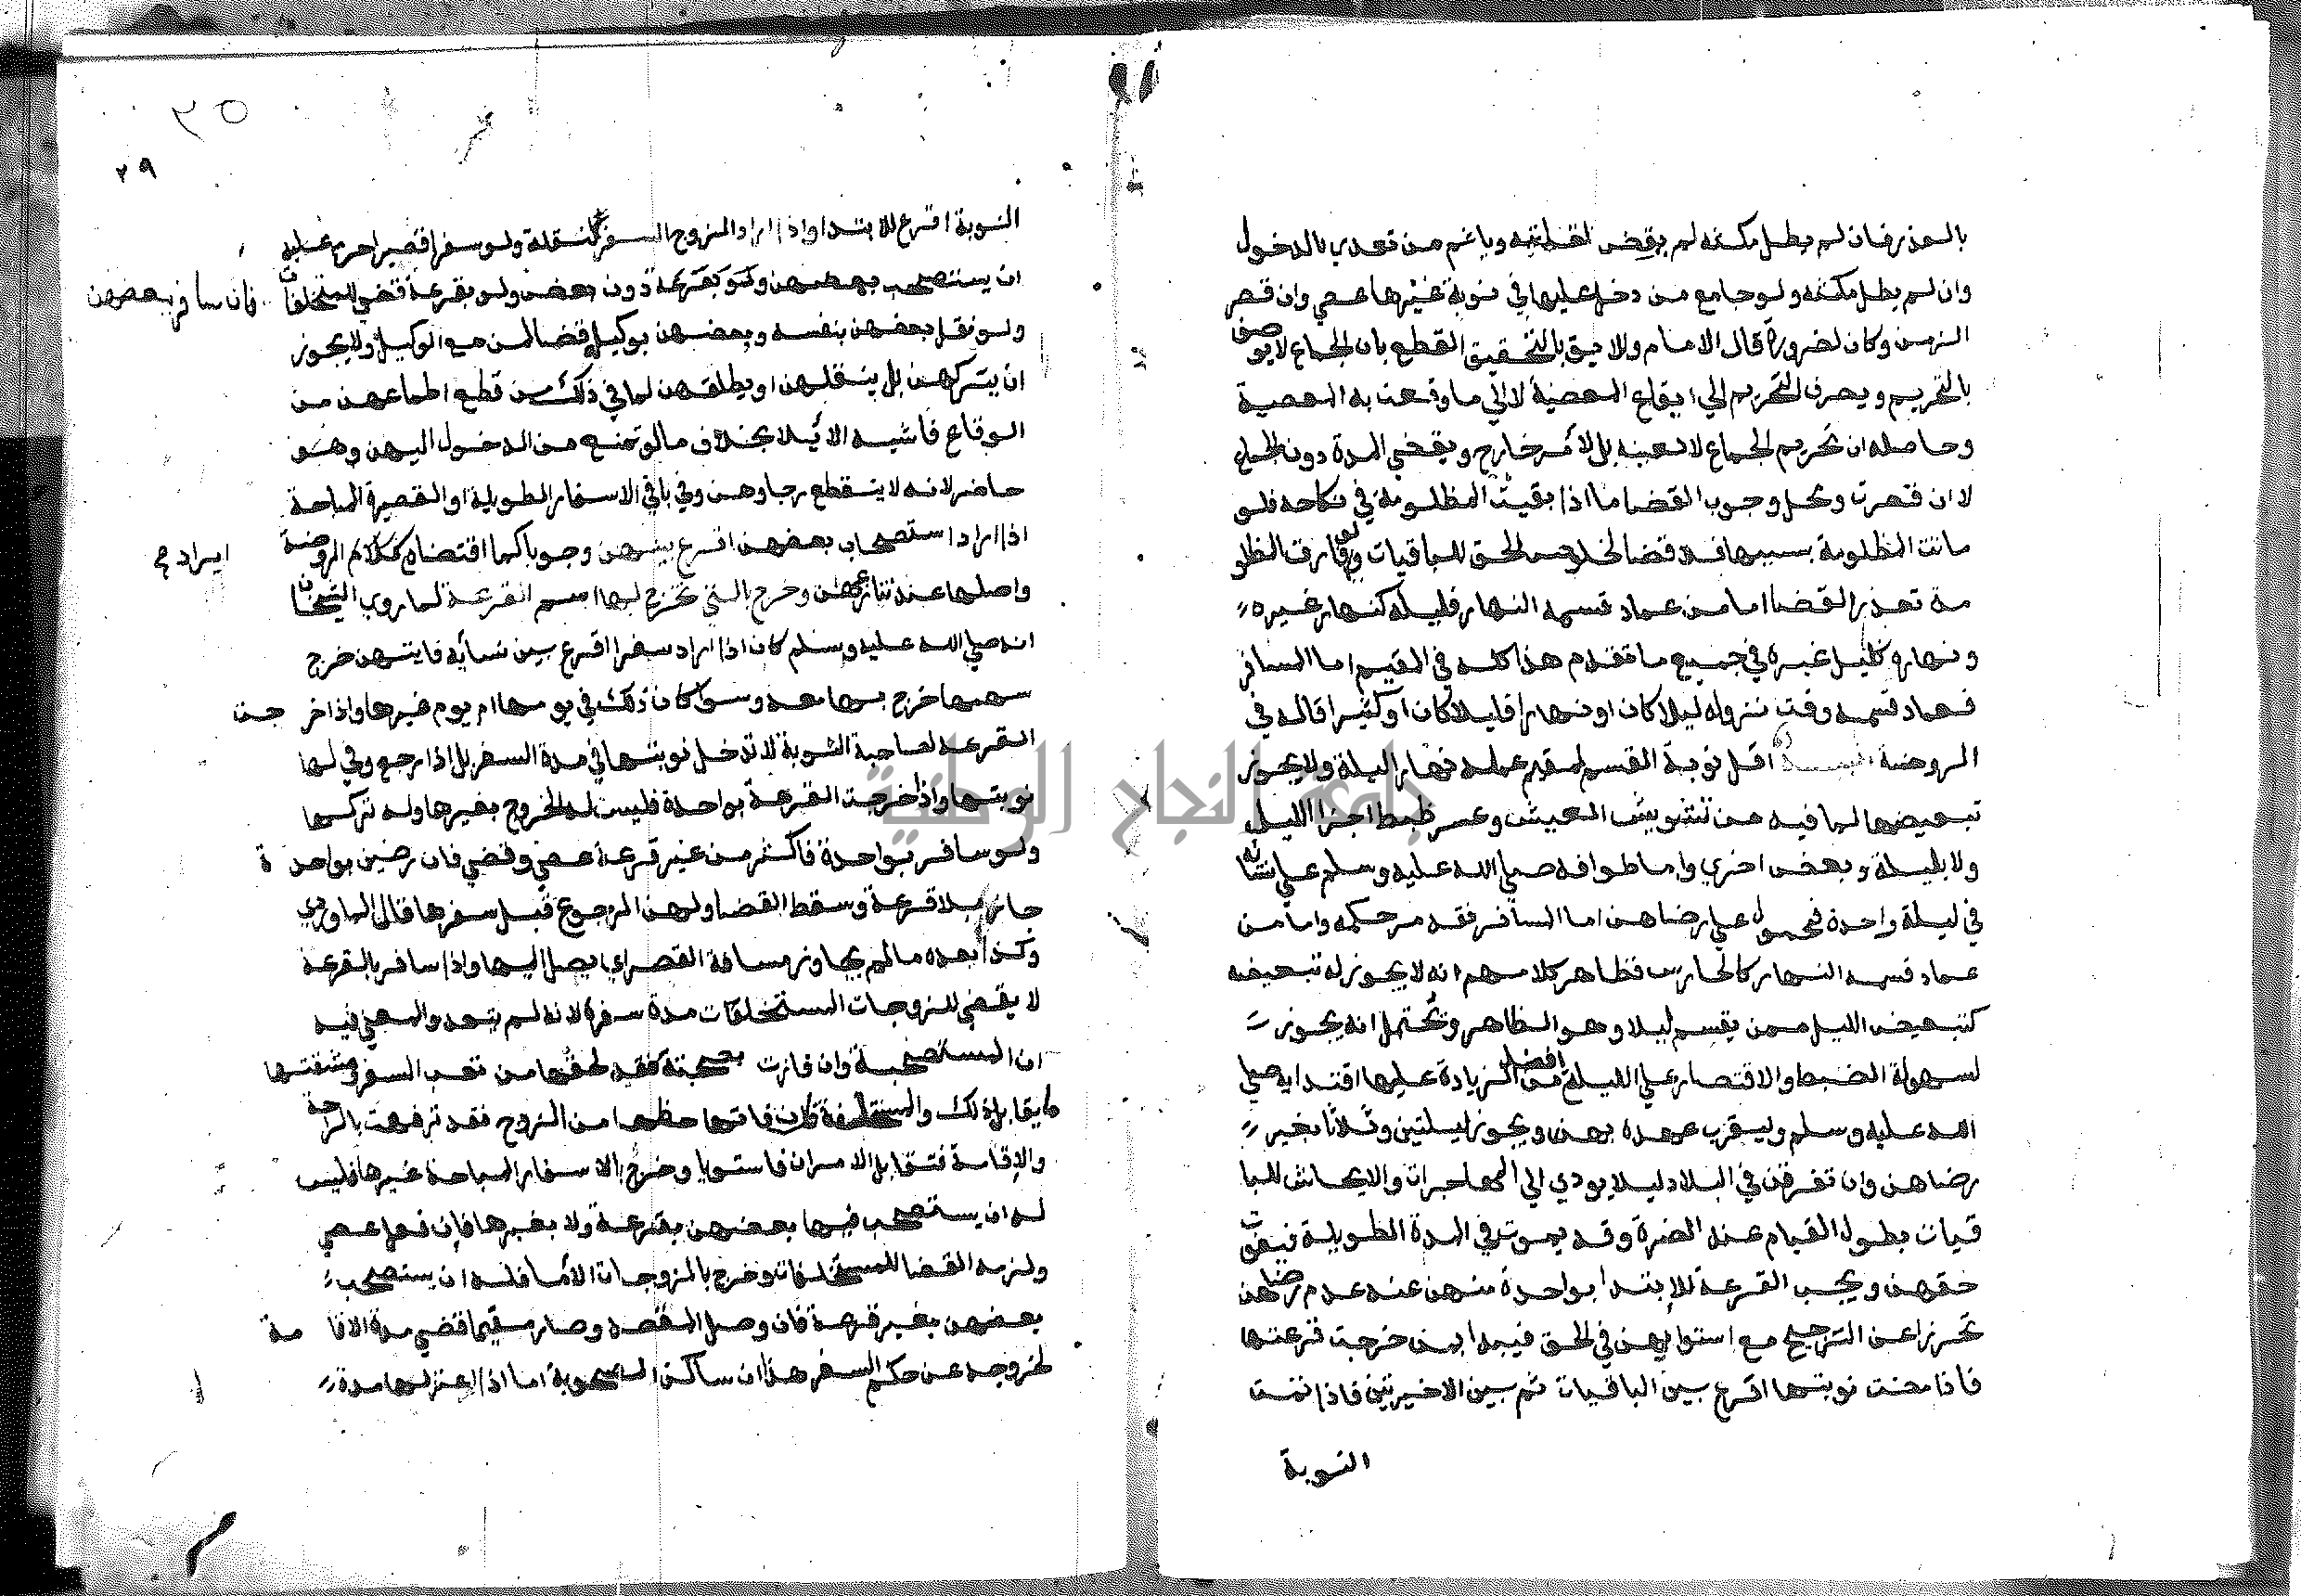 بالعذر فان لم يطل مكثه لم يقض لقلته وياثم من تعدي بالدخول
وان لم يطل مكثه ولو جامع من دخل عليها في نوبة غيرها عصي وان قصر
الزمن وكان لضرورة قال الامام واللايق بالتحقيق القطع بان الجماع لا يوصف
بالتحريم ويصرف التحريم الي ايقاع المعصية لا الي ما وقعت به المعصية
وحاصله ان تحريم الجماع لا لعينه بل لامر خارج ويقضي المدة دون الجماع
لا ان قصرت ومحل وجوب القضا ما اذا بقيت المظلومة في نكاحه فلو
ماتت المظلومة بسببها فلا قضا لخلوص الحق للباقيات ولو فارق المظلو
مة تعذر القضا اما من عماد قسمه النهار فليله كنهار غيره
ونهاره كليل غيره في جميع ما تقدم هذا كله في المقيم اما المسافر
فعماد قسمه وقت نزوله ليلا كان او نهارا قليلا كان او كثيرا قاله في
الروضة اقل نوبة القسم لمقيم عمله نهارا ليلة ولا يجوز
تبعيضها لما فيه من تشويش العيش وعسر ضبط اجزا الليل
ولا بليلة وبعض اخري واما طوافه صلي الله عليه وسلم علي نسائه
في ليلة واحدة فمحمول علي رضاهن اما المسافر فقد مر حكمه واما من
عماد قسمه النهار كالحارس فظاهر كلامهم انه لا يجوز له تبعيضه
كتبعيض الليل ممن يقسم ليلا وهو الظاهر ويحتمل انه يجوز
لسهولة الضبط والاقتصار علي الليلة افضل من الزيادة عليها اقتدا به صلي
الله عليه وسلم وليقرب عهده بهن ويجوز ليلتين وثلاثا بغير
رضاهن وان تفرقن في البلاد ليلا يودي الي المهاجرات والايحاش للبا
قيات بطول القيام عند الضرة وقد يموت في المدة الطويلة فيفوت
حقهن ويجب القرعة للابتدا بواحدة منهن عند عدم رضاهن
تحرزا عن الترجيح مع استوايهن في الحق فيبدا بمن خرجت قرعتها
فاذا مضت نوبتها اقرع بين الباقيات ثم بين الاخيرتين فاذا تمت
النوبة
٣٥
٢٩
النوبة اقرع للابتدا واذا اراد الزوج السفر لنقلة ولو سفرا قصيرا حرم عليه
ان يستصحب بعضهن ولو بقرعة دون بعض ولو بقرعة قضي للمتخلفات
فان سافر ببعضهن
ولو نقل بعضهن بنفسه وبعضهن بوكيل قضا لمن مع الوكيل ولا يجوز
ان يتركهن بل ينقلهن او يطلقهن لما في ذلك من قطع اطماعهن من
الوقاع فاشبه الايلا بخلاف ما لو تمنع من الدخول اليهن وهو
حاضر لانه لا ينقطع رجاوهن وفي باقي الاسفار الطويلة او القصيرة المباحة
اذا اراد استصحاب بعضهن اقرع بينهن وجوبا كما اقتضاه كلام الروضة
ايراد
واصلها عند تنازعهن وخرج بالتي تخرج لها اسم القرعة لما روي الشيخان
انه صلي الله عليه وسلم كان اذا اراد سفرا اقرع بين نسائه فايتهن خرج
سهمها خرج بها معه وسوا كان ذلك في يومها ام يوم غيرها واذا خر جت
القرعة لصاحبة النوبة لا تدخل نوبتها في مدة السفر بل اذا رجع وفي لها
نوبتها واذا خرجت القرعة بواحدة فليس له الخروج بغيرها وله تركها
ولو سافر بواحدة فاكثر من غير قرعة عصي وقضي فان رضين بواحد ة
جاز بلا قرعة وسقط القضا ولهن الرجوع قبل سفرها قال الماوردي
وكذا بعده ما لم يجاوز مسافة القصر اي يصل اليها واذا سافر بالقرعة
لا يقضي للزوجات المستخلفات مدة سفره لانه لم يتعد والمعني فيه
ان المستصحبة وان فازت بصحبته فقد لحقها من تعب السفر ومشقتها
ما يقابل ذلك والمستخلفة وان فاتها حظها من الزوج فقد ترفهت بالراحة
والاقامة فتقابل الامران فاستويا وخرج بالاسفار المباحة غيرها فليس
له ان يستصحب فيها بعضهن بقرعة ولا بغيرها فان فعل عصي
ولزمه القضا للمستخلفات وخرج بالزوجات الاما فله ان يستصحب
بعضهن بغير قرعة فان وصل المقصد وصار مقيما قضي مدة الاقا مة
لخروجه عن حكم السفر هذا ان ساكن المصحوبة اما اذا اعتزلها مدة